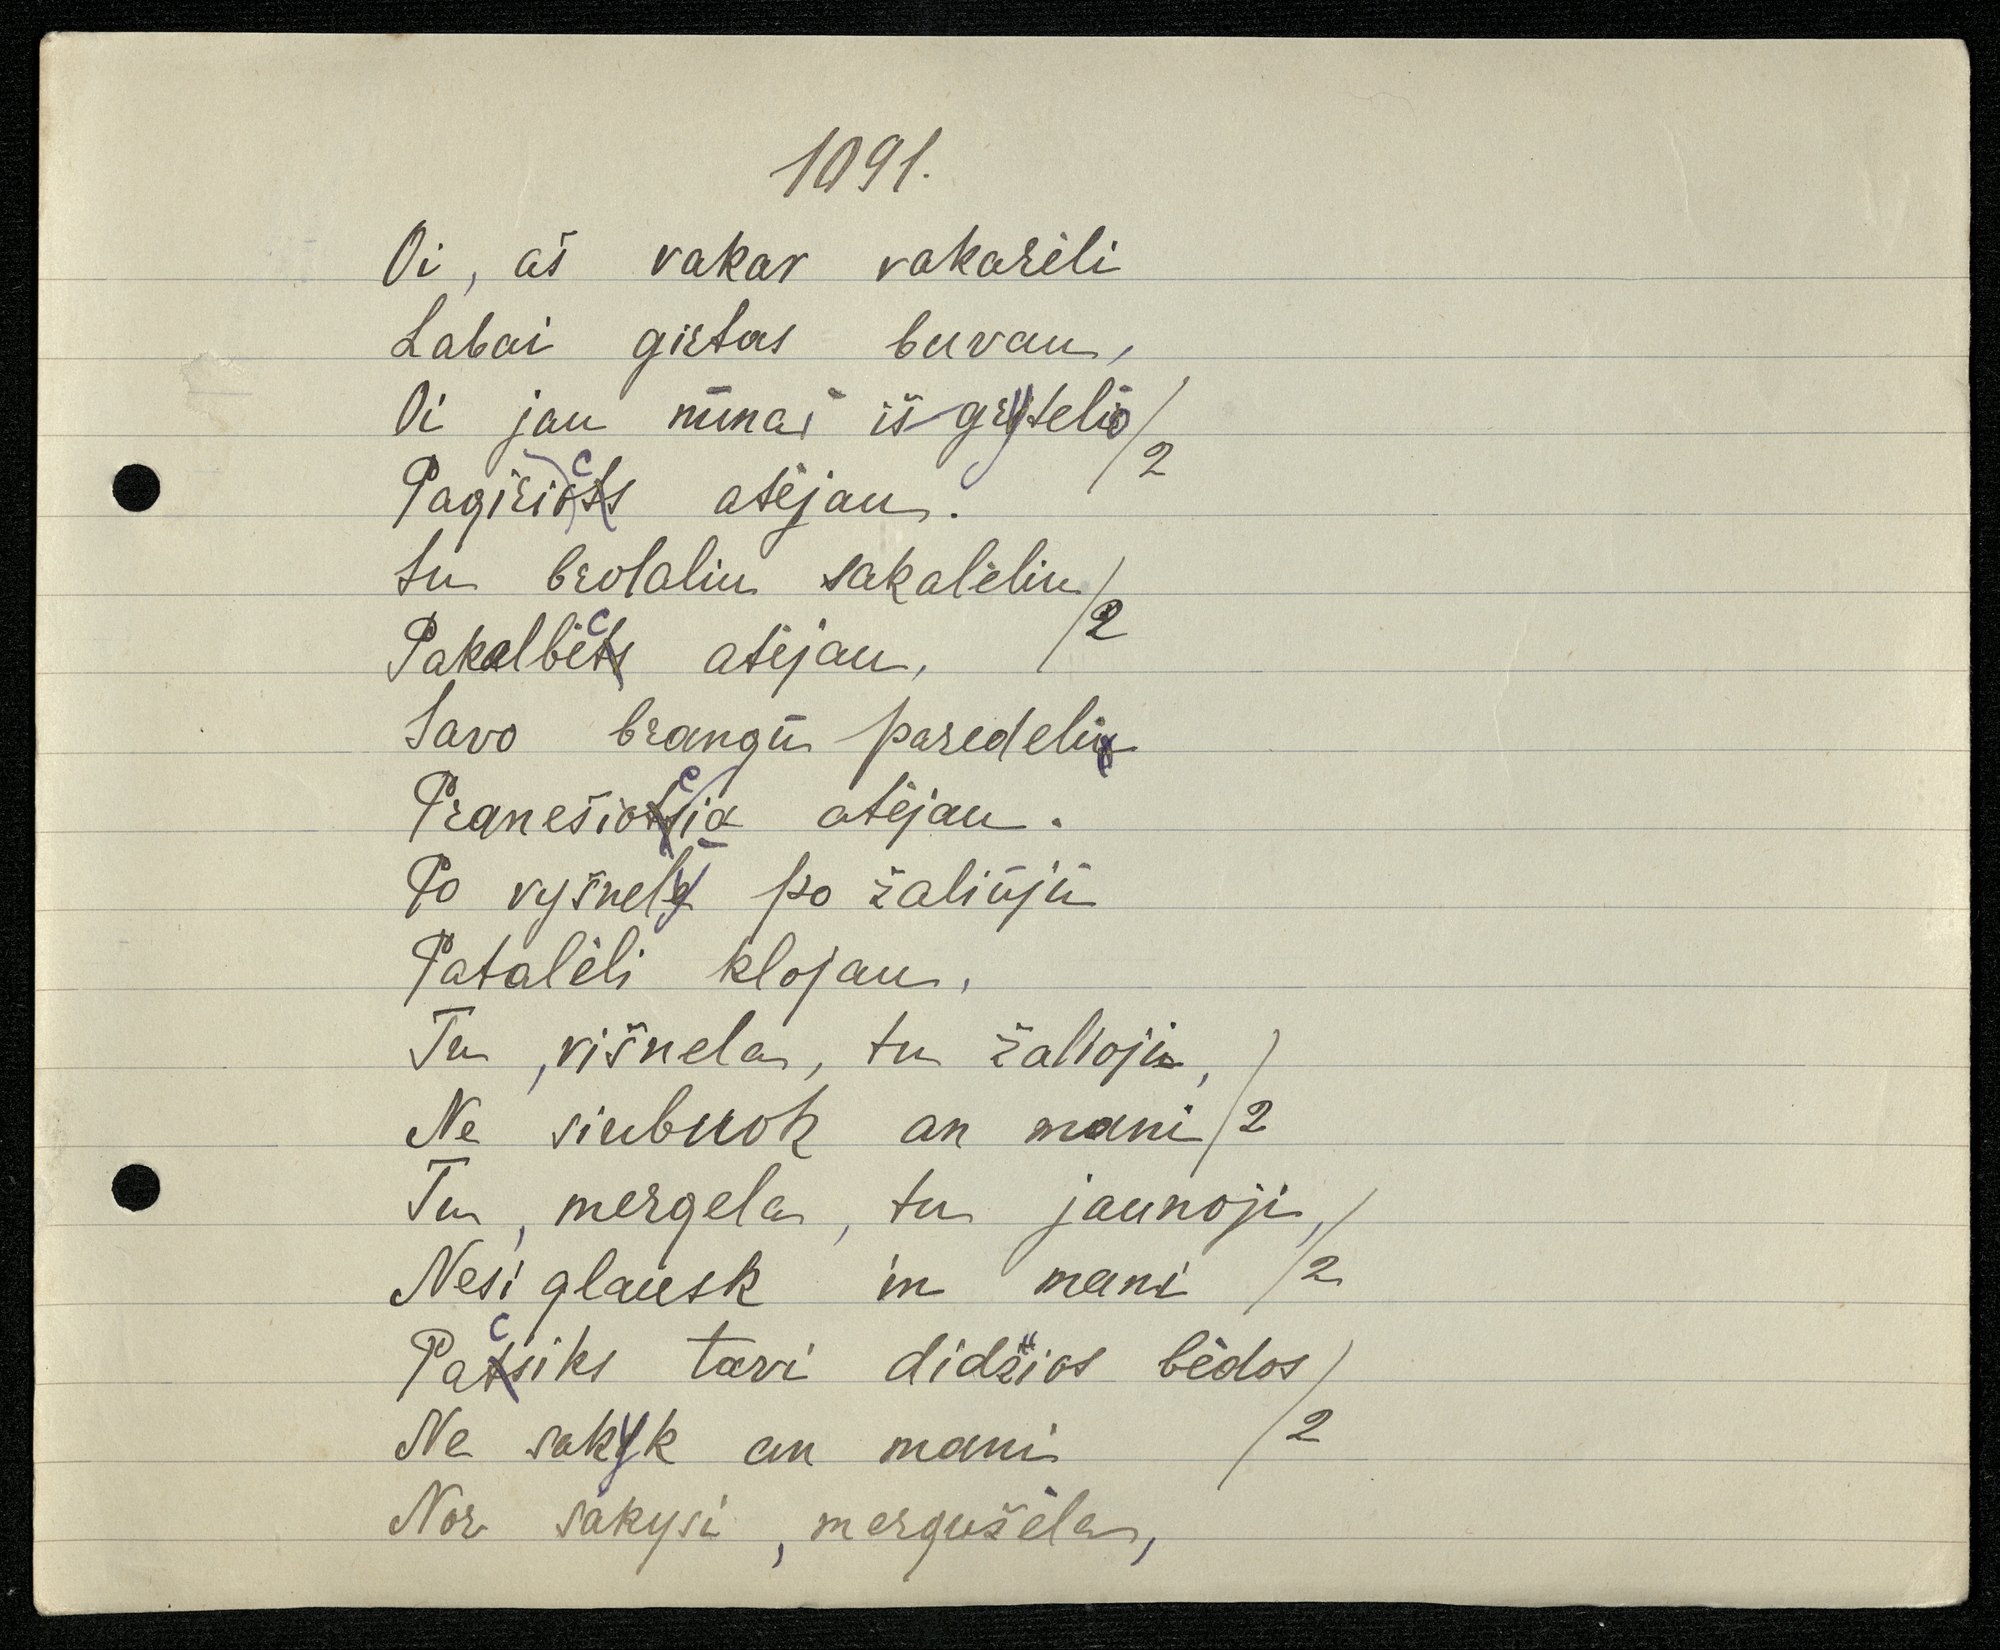 1091.
Oi, aš vakar vakarėli
Labai girtas buvau,
Oi jau nūnai iš grytelio /2
Pagirioc atėjau.
tu brolaliu sakalėliu /2
Pakalbėc atėjau,
Savo brangū paredeliu
Pranešiocia atėjau.
Po vyšnely po žaliūjū
Patalėli klojau,
Tu, višnela, tu žalioji,
Ne siubuok an mani /2
Tu, mergela, tu jaunoji,
Nesiglausk in mani /2
Pacsiks tavi didžios bėdos
Ne sakyk an mani /2
Nor sakysi, mergužėla,